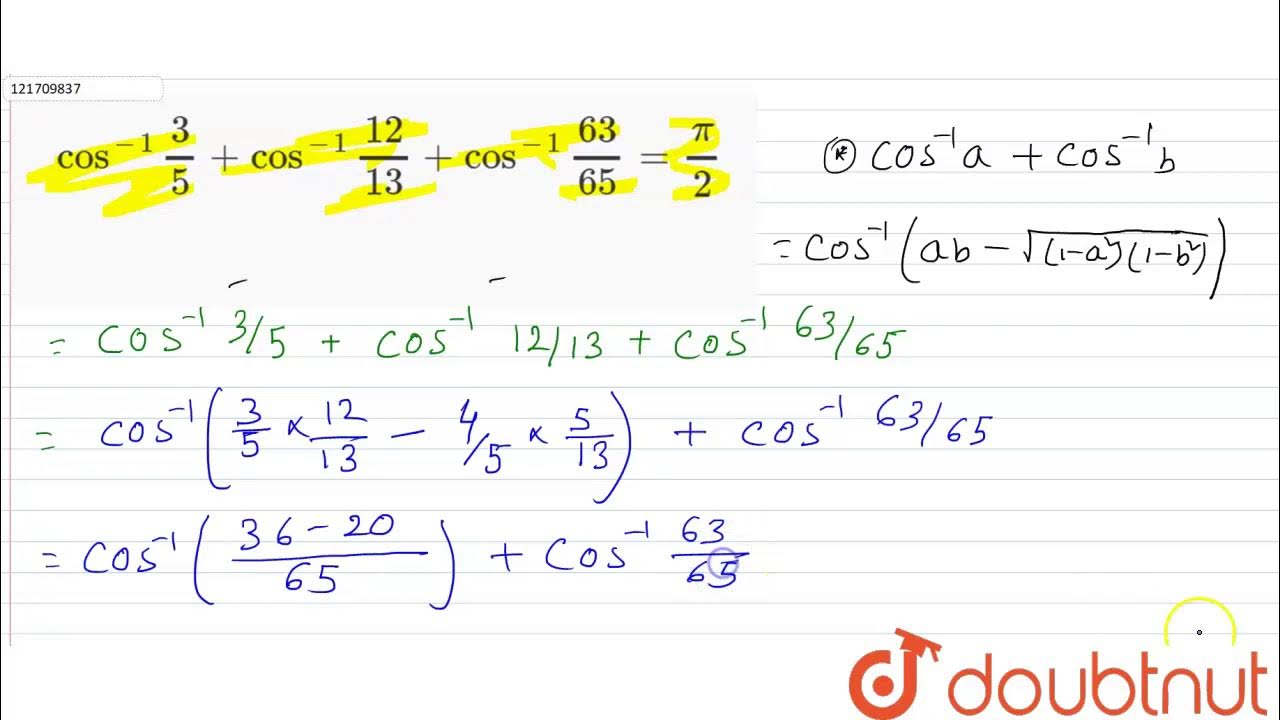 121709837
cos⁻¹ 3/5 + cos⁻¹ 12/13 + cos⁻¹ 63/65 = π/2
⊛ cos⁻¹a + cos⁻¹b
= cos⁻¹(ab − √(1−a²)(1−b²))
= cos⁻¹ 3/5 + cos⁻¹ 12/13 + cos⁻¹ 63/65
= cos⁻¹(3/5 × 12/13 − 4/5 × 5/13) + cos⁻¹ 63/65
= cos⁻¹(36−20/65) + cos⁻¹ 63/65
doubtnut